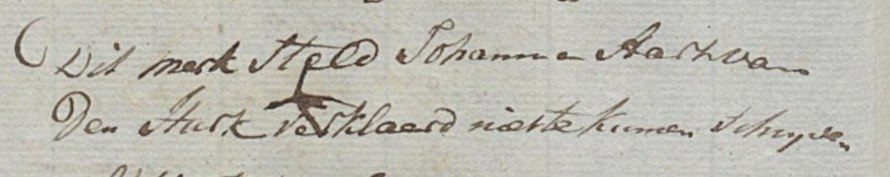 Dit merk steld Johanna Aart van
Den Hurk verklaard niet te kunnen schryven